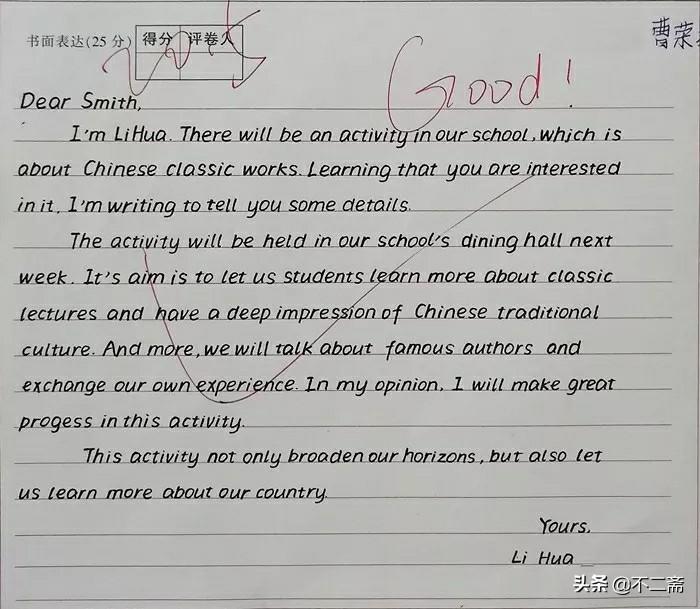 书面表达(25分) 得分 评卷人
Good!
曹荣
Dear Smith,
I'm Li Hua. There will be an activity in our school, which is
about Chinese classic works. Learning that you are interested
in it, I'm writing to tell you some details.
The activity will be held in our school's dining hall next
week. It's aim is to let us students learn more about classic
lectures and have a deep impression of Chinese traditional
culture. And more, we will talk about famous authors and
exchange our own experience. In my opinion, I will make great
progess in this activity.
This activity not only broaden our horizons, but also let
us learn more about our country.
Yours,
Li Hua
头条 @不二斋